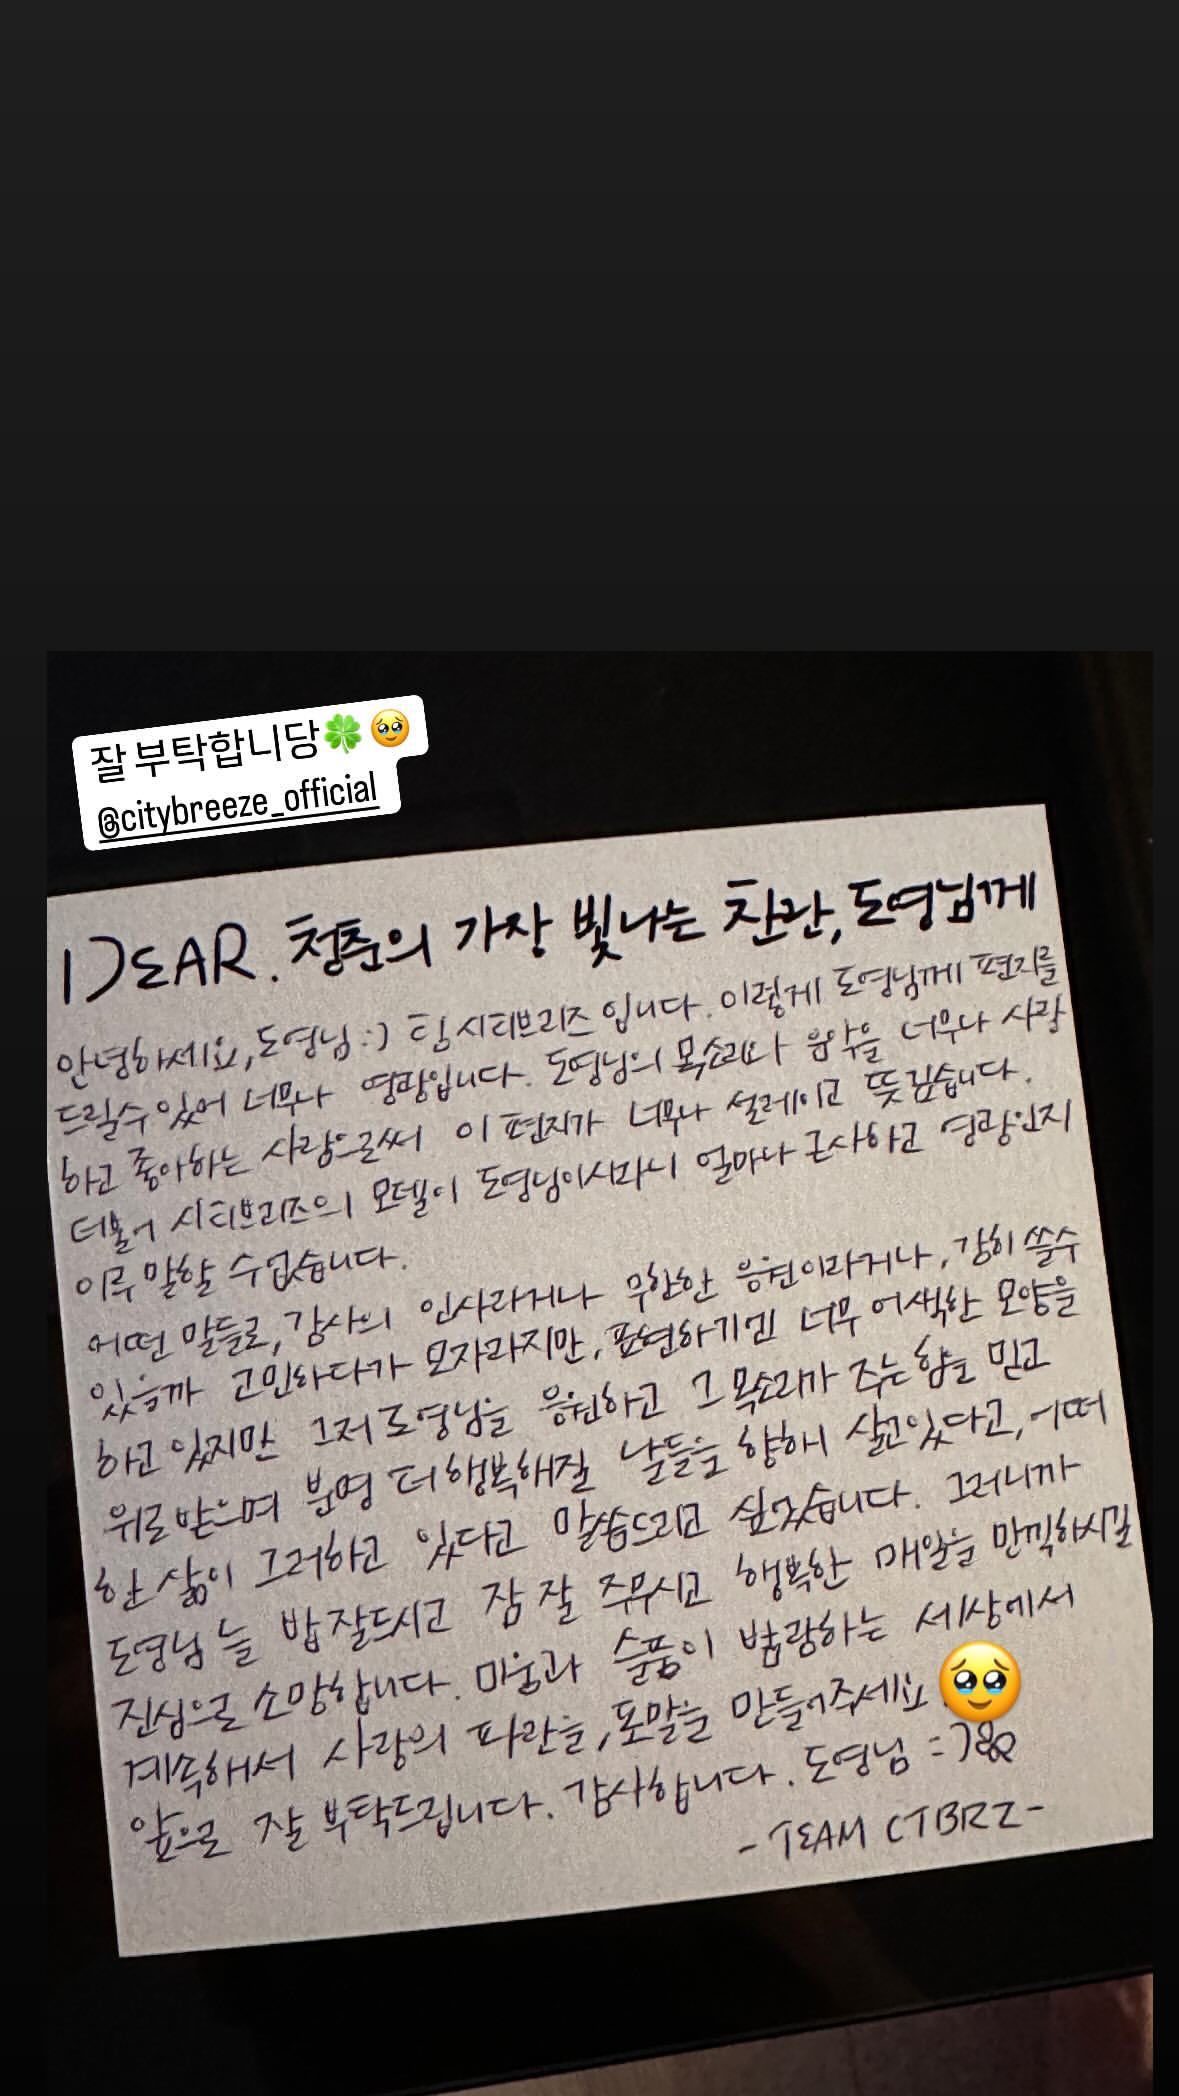 잘 부탁합니당🍀🥹
@citybreeze_official
DEAR. 청춘의 가장 빛나는 찬란, 도영님께
안녕하세요, 도영님 :) 팀 시티브리즈 입니다. 이렇게 도영님께 편지를
드릴수 있어 너무나 영광입니다. 도영님의 목소리와 음악을 너무나 사랑
하고 좋아하는 사람으로써 이 편지가 너무나 설레이고 뜻깊습니다.
더불어 시티브리즈의 모델이 도영님이시라니 얼마나 근사하고 영광인지
이루 말할 수 없습니다.
어떤 말들로, 감사의 인사라거나 무한한 응원이라거나, 감히 쓸수
있을까 고민하다가 모자라지만, 표현하기엔 너무 어색한 모양을
하고 있지만 그저 도영님을 응원하고 그 목소리가 주는 힘을 믿고
위로받으며 분명 더 행복해질 날들을 향해 살고있다고, 어떠
한 삶이 그러하고 있다고 말씀드리고 싶었습니다. 그러니까
도영님 늘 밥 잘드시고 잠 잘 주무시고 행복한 매일을 만끽하시길
진심으로 소망합니다. 미움과 슬픔이 범람하는 세상에서
계속해서 사랑의 파란을, 포말을 만들어주세요.🥹
앞으로 잘 부탁드립니다. 감사합니다. 도영님 =)
-TEAM CTBRZ-